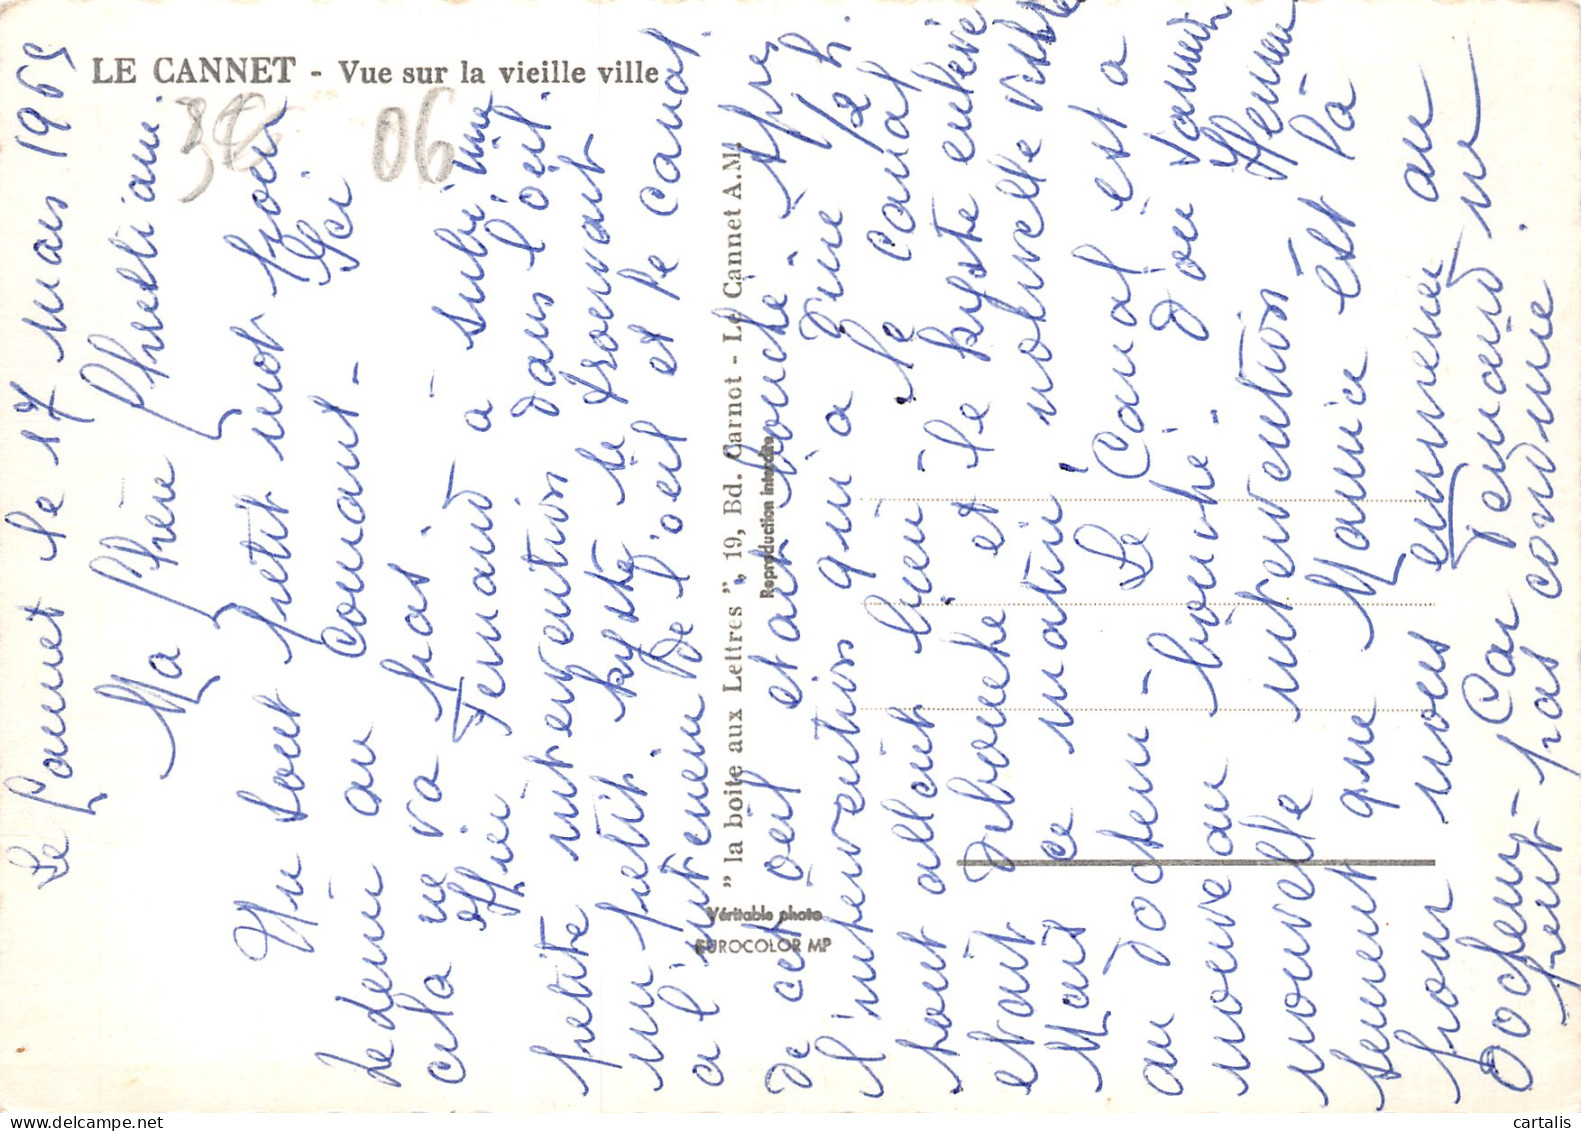 LE CANNET - Vue sur la vieille ville
38
06
" la boite aux Lettres ", 19, Bd. Carnot - Le Cannet A.M.
Reproduction interdite
Véritable photo
EUROCOLOR MP
Le Cannet le 17 mars 1965
Ma Chère
Un tout petit mot pour
te tenir au courant - Ici
cela ne va pas.
Hier Fernand à subi une
petite intervention dans l'œil.
un petit kyste se trouvant
a l'intérieur de l'œil et le canal
de cet œil etait bouché. Apres
l'intervention qui a duré 1/2 h.
tout allait bien le canal
debouché et le kyste enlevé
etait
Mais ce matin! nouvelle visite
au docteur Le Canal est a
nouveau bouché. d'ou
nouvelle intervention
sement que Maurice est là
pour nous emmener au
Docteur - Car Fernand n
peut pas conduire.
cartalis